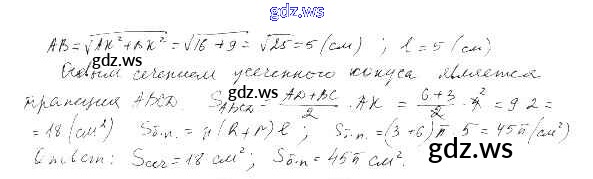 gdz.ru
AB=√AX²+BX²=√16+9=√25=5(см) ; l=5(см)
Осевым сечением усеченного конуса является
gdz.ru
трапеция ABCD. S_ABCD = (AD+BC)/2 · AX = (6+3)/2 · 4 = 9·2=
=18(см²) Sб.п.=π(R+r)l; Sб.п.=(3+6)π·5=45π(см²)
Ответ: Sсеч=18 см²; Sб.п.=45π см².
gdz.ru
gdz.ru